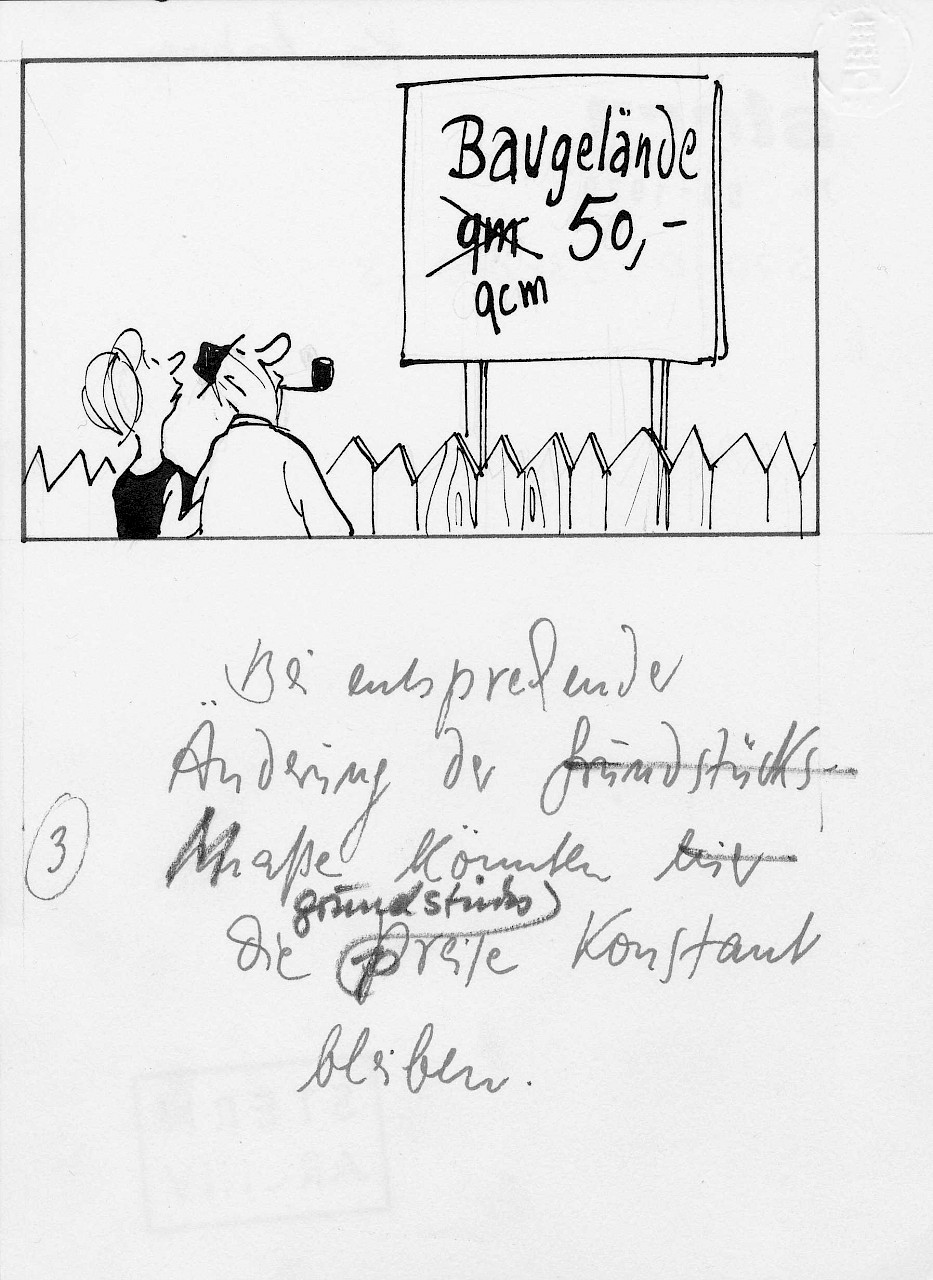 Baugelände
qm 50,-
qcm
"Bei entsprechender
Änderung der Grundstücks-
Maße könnten wir
grundstücks
3
die preise konstant
bleiben.
STERN
ARCHIV